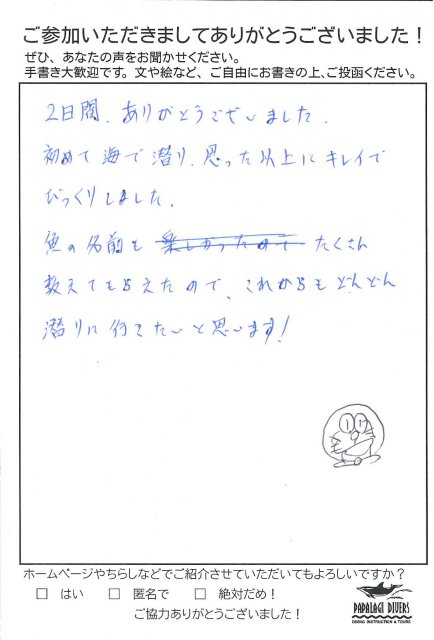 ご参加いただきましてありがとうございました！
ぜひ、あなたの声をお聞かせください。
手書き大歓迎です。文や絵など、ご自由にお書きの上、ご投函ください。
2日間、ありがとうございました。
初めて海で潜り、思った以上にキレイで
びっくりしました。
魚の名前も楽しかったので たくさん
教えてもらえたので、これからもどんどん
潜りに行きたいと思います！
ホームページやちらしなどでご紹介させていただいてもよろしいですか？
□ はい □ 匿名で □ 絶対だめ！
ご協力ありがとうございました！
PAPALAGI DIVERS
DIVING INSTRUCTION & TOURS